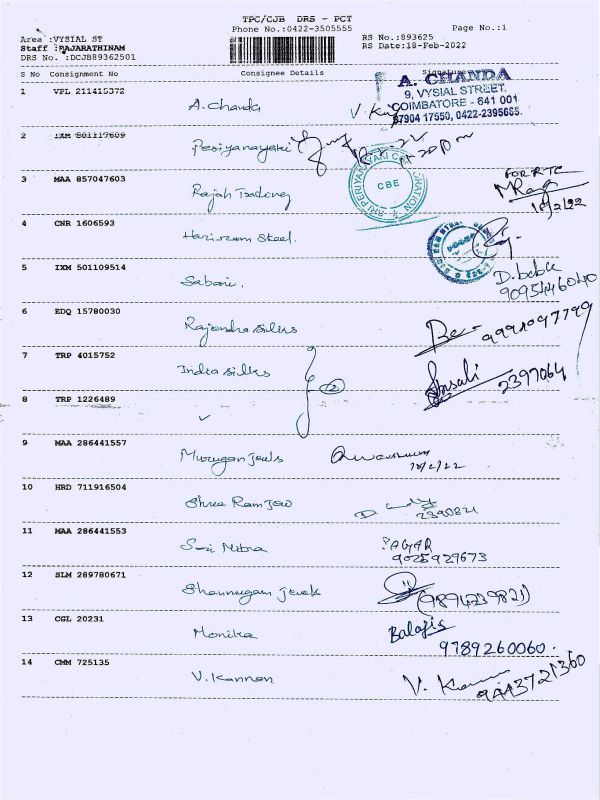 TPC/CJB DRS - PCT
Phone No.:0422-3505555 Page No.:1
Area :VYSIAL ST RS No.:893625
Staff :RAJARATHINAM RS Date:18-Feb-2022
DRS No. :DCJB89362501
S No Consignment No Consignee Details Signature
A. CHANDA
9, VYSIAL STREET,
COIMBATORE - 641 001
97904 17550, 0422-2395665.
1 VPL 211415372 A. Chanda
2 IXM 501117609 Periyanayaki
SRI PERIYANAYAKI CORPORATION
CBE
3 MAA 857047603 Rajah Trading FOR RTC
18/2/22
4 CNR 1606593 Hariram Steel.
5 IXM 501109514 Sabari. D. beba
9095446040
6 EDQ 15780030 Rajendra silks 9991097799
7 TRP 4015752 Indra silks 2397064
8 TRP 1226489 ✓
9 MAA 286441557 Murugan Jewels
18/2/22
10 HRD 711916504 Shree Ram Jew D
2390821
11 MAA 286441553 Sri Mitra SAGAR
9025929673
12 SLM 289780671 Shanmugam Jewels (9894239821)
13 CGL 20231 Monika Balajis
9789260060.
14 CMM 725135 V. Kannan V. Kannan
9443721360